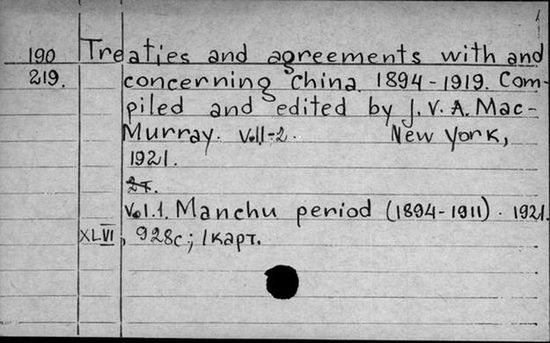 190 Treaties and agreements with and
219. concerning China 1894-1919. Com-
piled and edited by J. V. A. Mac-
Murray. Vol.1-2. New York,
1921.
2т.
Vol.1. Manchu period (1894-1911). 1921.
XLVI, 928с; 1карт.